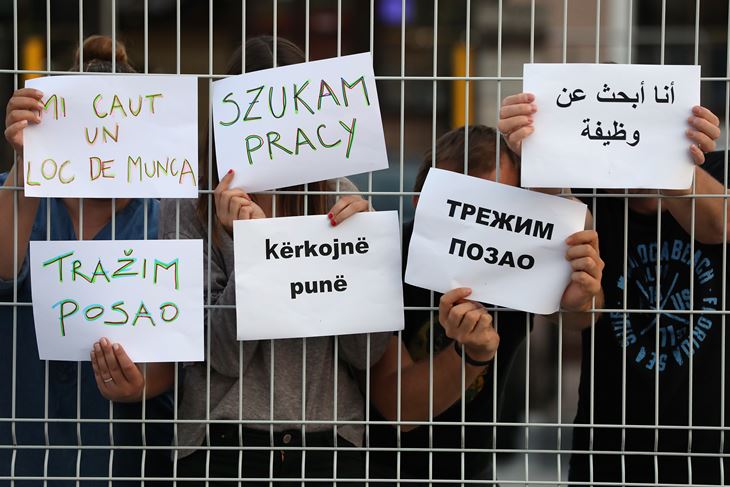 MI CAUT
UN
LOC DE MUNCA
SZUKAM
PRACY
أنا أبحث عن
وظيفة
TRAŽIM
POSAO
kërkojnë
punë
ТРЕЖИМ
ПОЗАО